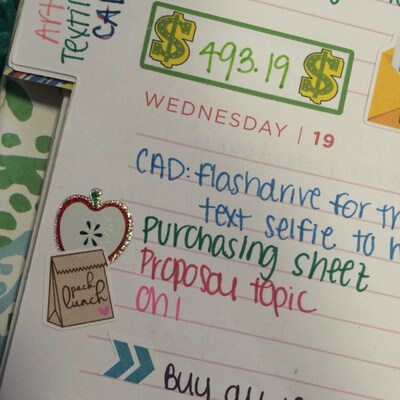 Art
Texti
CAD
$ 493.19 $
WEDNESDAY | 19
CAD: flashdrive for
text selfie to
purchasing sheet
Proposal topic
pack
lunch
Buy